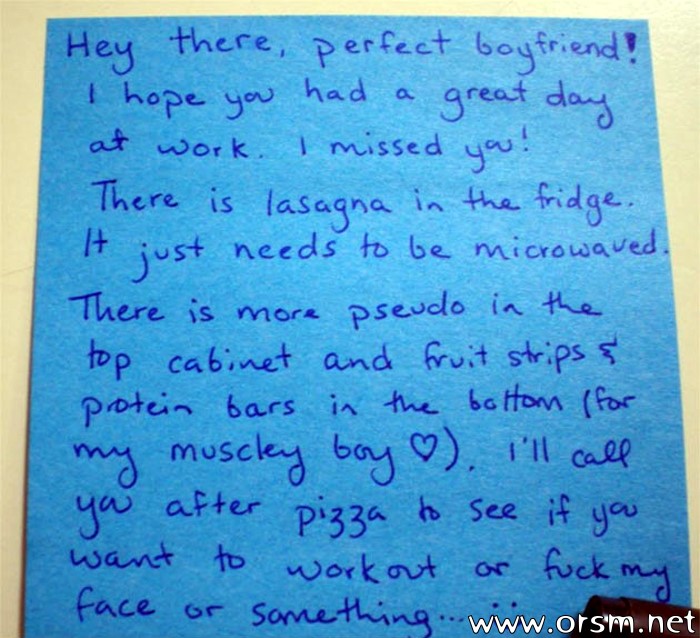 Hey there, perfect boyfriend!
I hope you had a great day
at work. I missed you!
There is lasagna in the fridge.
It just needs to be microwaved.
There is more pseudo in the
top cabinet and fruit strips &
protein bars in the bottom (for
my muscley boy ♡). I'll call
you after pizza to see if you
want to workout or fuck my
face or something...
www.orsm.net